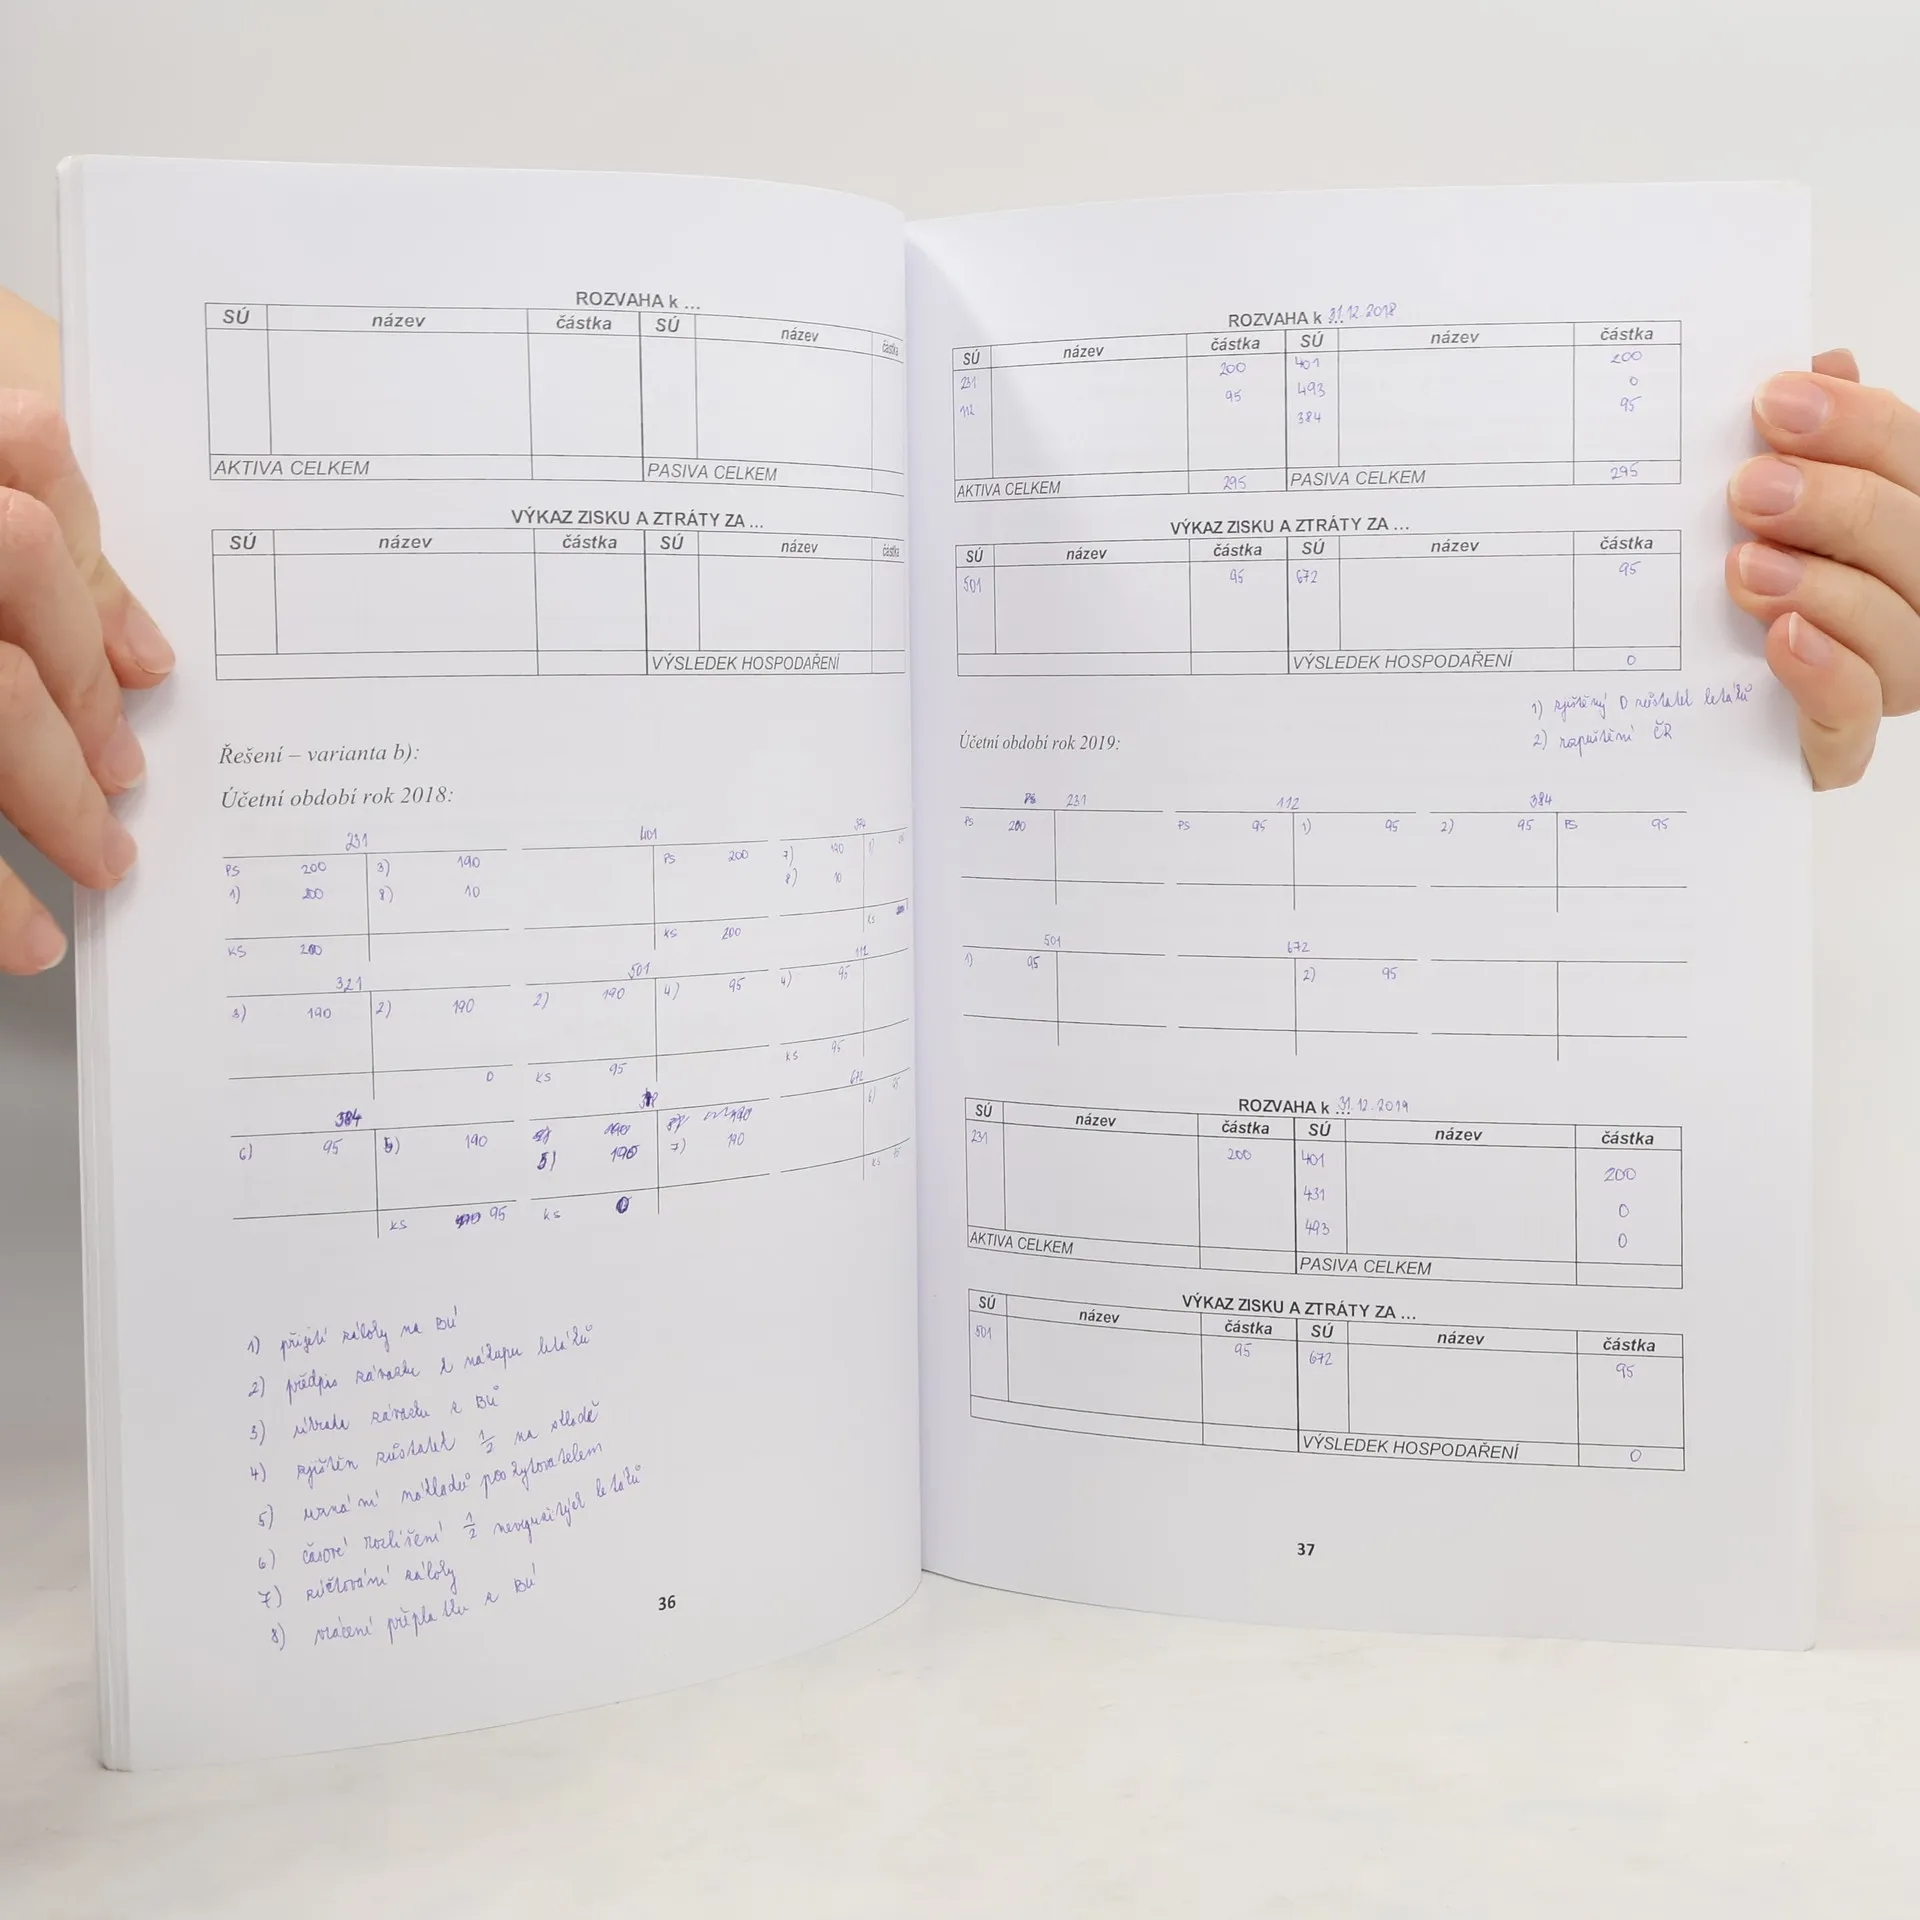 ROZVAHA k ...
SÚ název částka SÚ název částka
AKTIVA CELKEM PASIVA CELKEM
VÝKAZ ZISKU A ZTRÁTY ZA ...
SÚ název částka SÚ název částka
VÝSLEDEK HOSPODAŘENÍ
Řešení – varianta b):
Účetní období rok 2018:
231 401 374
PS 200 3) 190 PS 200 7) 190 1)
1) 200 8) 10 8) 10
KS 200 KS 200 KS
321 501 112
3) 190 2) 190 2) 190 4) 95 4) 95
0 KS 95 KS 95
384 672
6) 95 5) 190 5) 190 7) 190 6)
KS 95 KS 0 KS
1) přijetí zálohy na BÚ
2) předpis závazku z nákupu letáků
3) úhrada závazku z BÚ
4) zjištěn zůstatek 1/2 na skladě
5) uznání nákladů poskytovatelem
6) časové rozlišení 1/2 nevyužitých letáků
7) zúčtování zálohy
8) vrácení přeplatku z BÚ
36
ROZVAHA k ... 31.12.2018
SÚ název částka SÚ název částka
231 200 401 200
112 95 493 0
384 95
AKTIVA CELKEM 295 PASIVA CELKEM 295
VÝKAZ ZISKU A ZTRÁTY ZA ...
SÚ název částka SÚ název částka
501 95 672 95
VÝSLEDEK HOSPODAŘENÍ 0
1) zjištěný 0 zůstatek letáků
2) rozpuštění ČR
Účetní období rok 2019:
PS 231 112 384
PS 200 PS 95 1) 95 2) 95 PS 95
501 672
1) 95 2) 95
ROZVAHA k ... 31.12.2019
SÚ název částka SÚ název částka
231 200 401 200
431 0
493 0
AKTIVA CELKEM PASIVA CELKEM
VÝKAZ ZISKU A ZTRÁTY ZA ...
SÚ název částka SÚ název částka
501 95 672 95
VÝSLEDEK HOSPODAŘENÍ 0
37